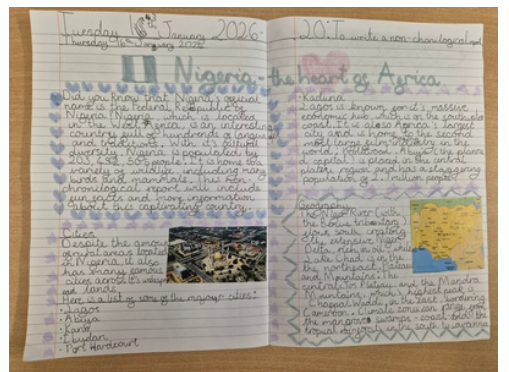 Tuesday 6th January 2026
Thursday 16th January 2026
Nigeria - the heart of Africa
Did you know that Nigeria's official
name is the Federal Republic of
Nigeria? Nigeria, which is located
in the West Africa, is an interesting
country with hundreds of languages
and traditions. With it's cultural
diversity Nigeria is populated by
people. It is home to a
variety of wildlife, including many
birds and mammals. This non-
chronological report will include
fun facts and more information
about this captivating country.
Cities
Despite the amount
of rural areas located
in Nigeria, it also
has many famous
cities across it's
land.
Here is a list of some of the major cities:
· Lagos
· Abuja
· Kano
· Ibadan
· Port Hardcourt
LO: To write a non-chronological
· Kaduna
Lagos is known for it's massive
economic hub, which is on the southwest
coast. It is also Africa's largest
city and is home to the second
most large film industry in the
world, Nollywood. Abuja (the planne
d capital) is placed in the central
plateu region and has a staggering
population of million people!
Geography
The Niger River (with
the Benue tributary)
flows south, creating
the extensive Niger
Delta, rich in oil, while
Lake Chad is in the
the northeast, Plateau
and Mountains: The
central Jos Plateau, and the Mandra
Mountains, which highest peak is
Chappal Waddi, in the east, bordering
Cameroon. Climate zones can range from
the mangroves swamps - coast and the
tropical in the south to savanna